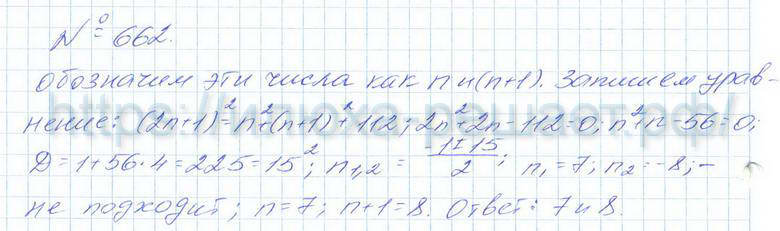 № 662.
обозначим эти числа как n и (n+1). Запишем урав-
нение: (2n+1)²=n²+(n+1)²+112; 2n²+2n-112=0; n²+n-56=0;
D=1+56·4=225=15²; n₁,₂ = (1±15)/2; n₁=7; n₂=-8; -
не подходит; n=7; n+1=8. Ответ: 7 и 8.